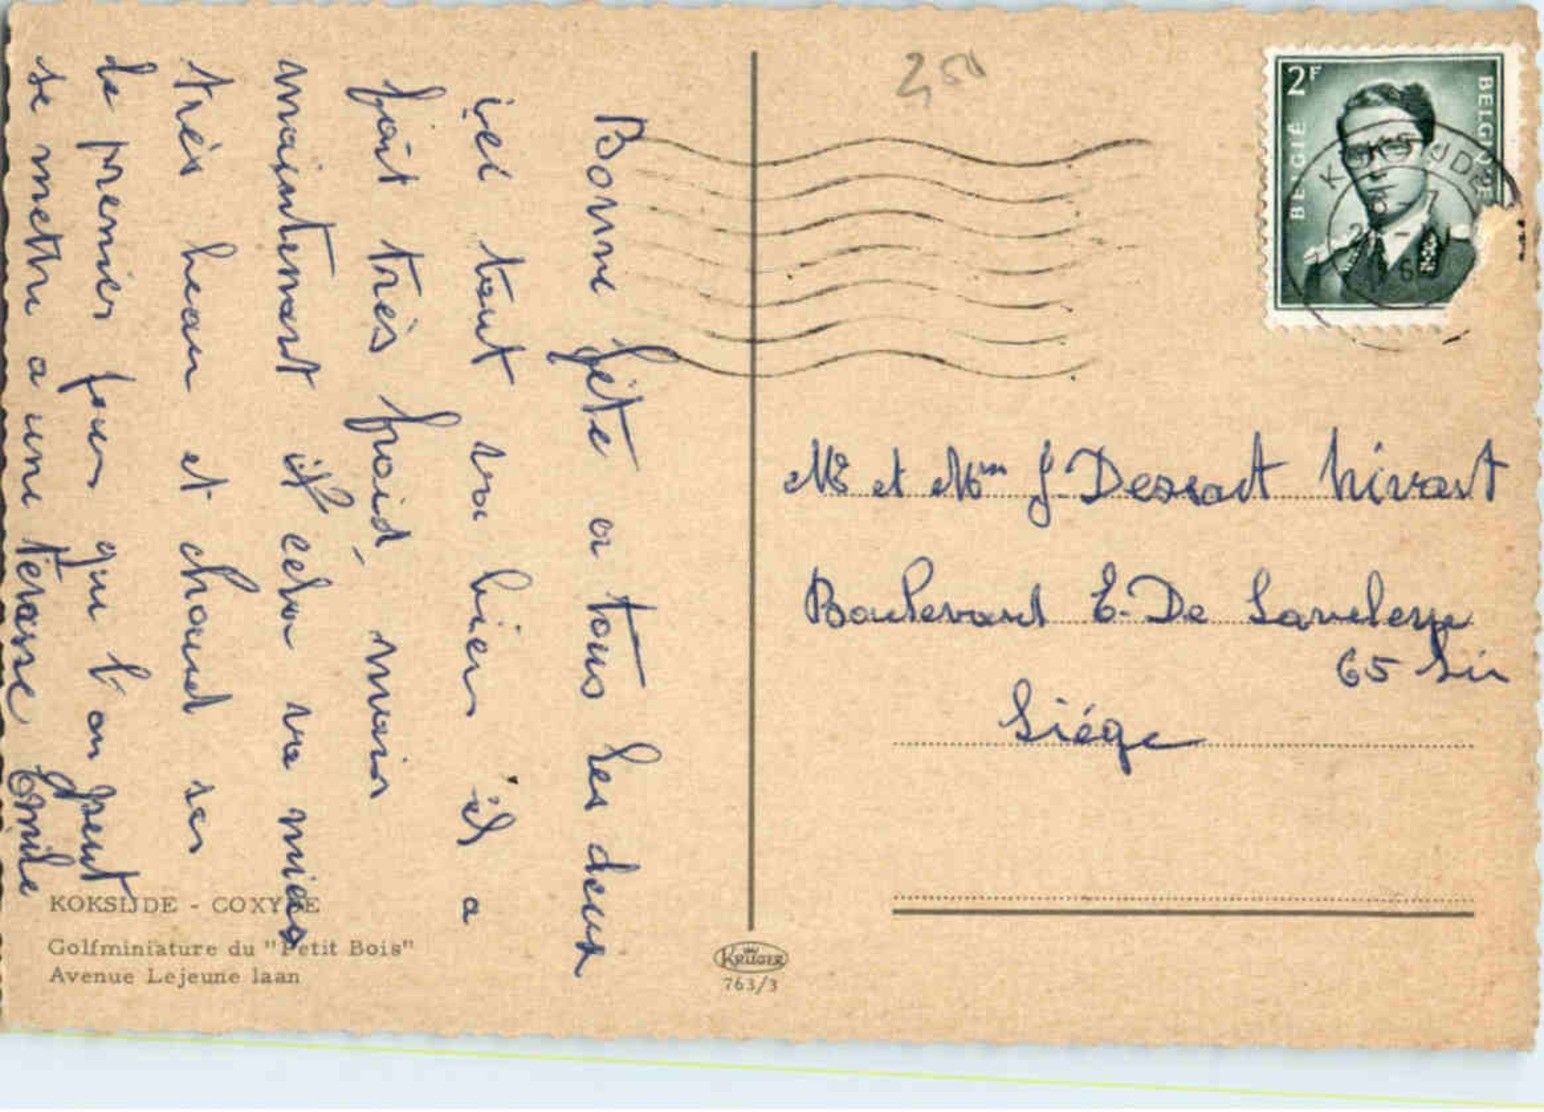 Bonne fête a tous les deux
ici tout va bien il a
fait très froid, mais
maintenant il cela va mieux
très beau et chaud ses
le premier jour qui l'on peut
se mettre a une terasse Emile
KOKSIJDE - COXYDE
Golfminiature du "Petit Bois"
Avenue Lejeune laan
KRUGER
763/3
2,50
2F
BELGIË
BELGIQUE
KOKSIJDE
Mr et Mme J. Dessart Nivart
Boulevard E. De Laveleye
65
Liége